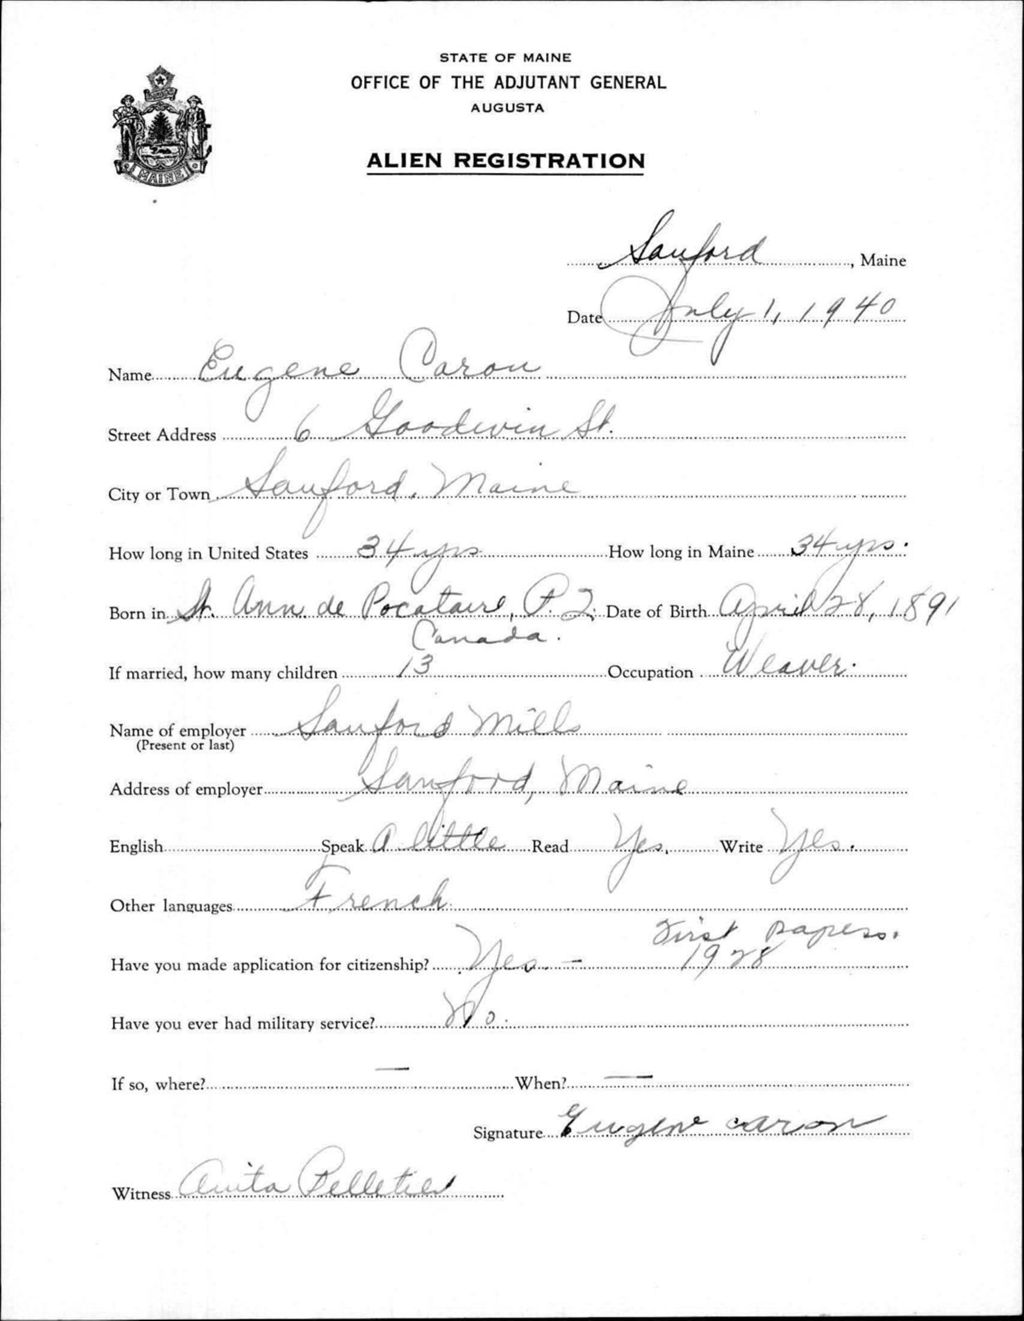 STATE OF MAINE
OFFICE OF THE ADJUTANT GENERAL
AUGUSTA
ALIEN REGISTRATION
MAINE
Sanford, Maine
Date July 1, 1940
Name Eugene Caron
Street Address 6 Goodwin St.
City or Town Sanford, Maine
How long in United States 34 yrs How long in Maine 34 yrs.
Born in St. Ann de Pocataire, P.Q. Date of Birth April 28, 1891
Canada.
If married, how many children 13 Occupation Weaver.
Name of employer Sanford Mills
(Present or last)
Address of employer Sanford, Maine
English Speak A little Read Yes. Write Yes.
Other languages French
First papers.
Have you made application for citizenship? Yes. - 1928
Have you ever had military service? No.
If so, where? — When? —
Signature Eugene Caron
Witness Anita Pelletier